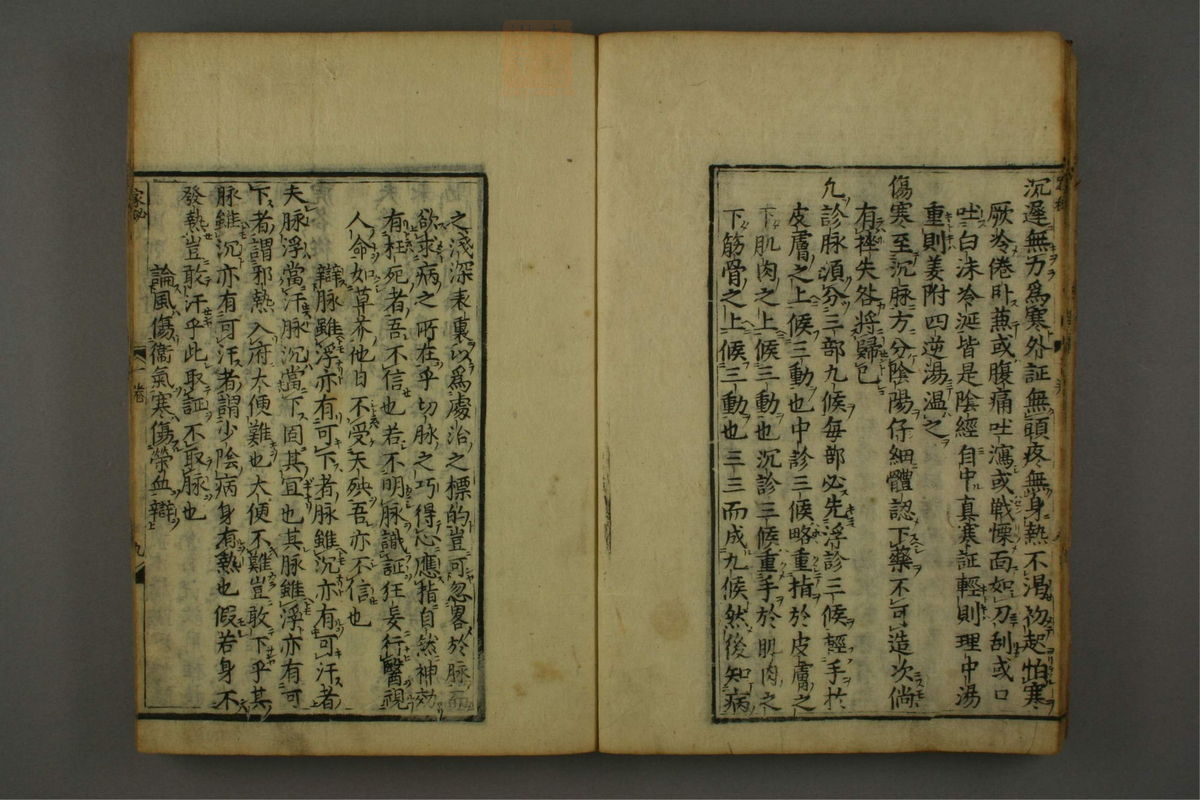 沉遲無力爲寒外証無頭疼無身熱不渴初起怕寒
厥冷倦卧蒸或腹痛吐瀉或戦慄面如刀刮或口
吐白沫冷涎皆是陰經自中真寒証輕則理中湯
重則姜附四逆湯温之
傷寒至沉脉方分陰陽仔細體認下藥不可造次倘
有挫失咎將歸已
九診脉湏分三部九候毎部必先浮診三候輕手於
皮膚之上候三動也中診三候略重指於皮膚之
下肌肉之上候三動也沉診三候重手於肌肉之
下筋骨之上候三動也三三而成九候然後知病
之淺深表裏以爲處治之標的豈可忽畧於脉而
欲求病之所在乎切脉之巧得心應指自然神效
有枉死者吾不信也若不明脉識証狂妄行醫視
人命如草芥他日不受天殃吾亦不信也
辯脉雖浮亦有可下者脉雖沉亦有可汗者
夫脉浮當汗脉沉當下固其宜也其脉雖浮亦有可
下者謂邪熱入府大便難也大便不難豈敢下乎其
脉雖沉亦有可汗者謂少陰病身有熱也假若身不
發熱豈敢汗乎此取証不取脉也
論風傷衞氣寒傷榮血辯
一卷
九